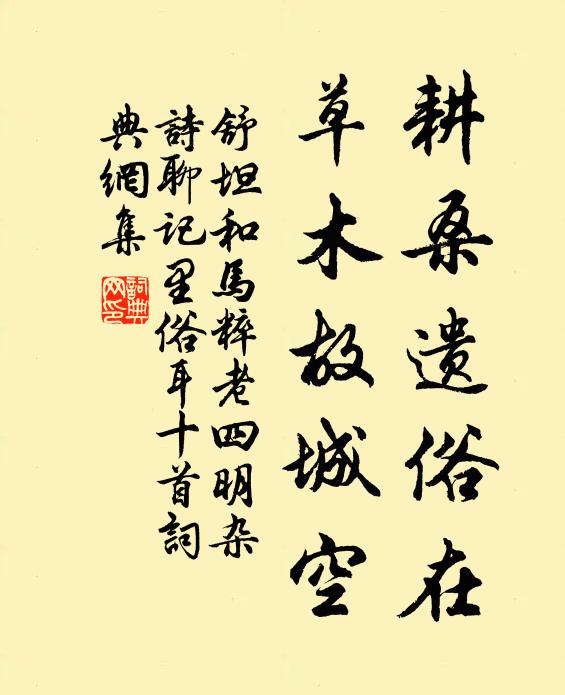 耕桑遗俗在
草木故城空
舒坦和馬粹老四明杂
詩聊記里俗耳十首詞
典網集
詞典
网印